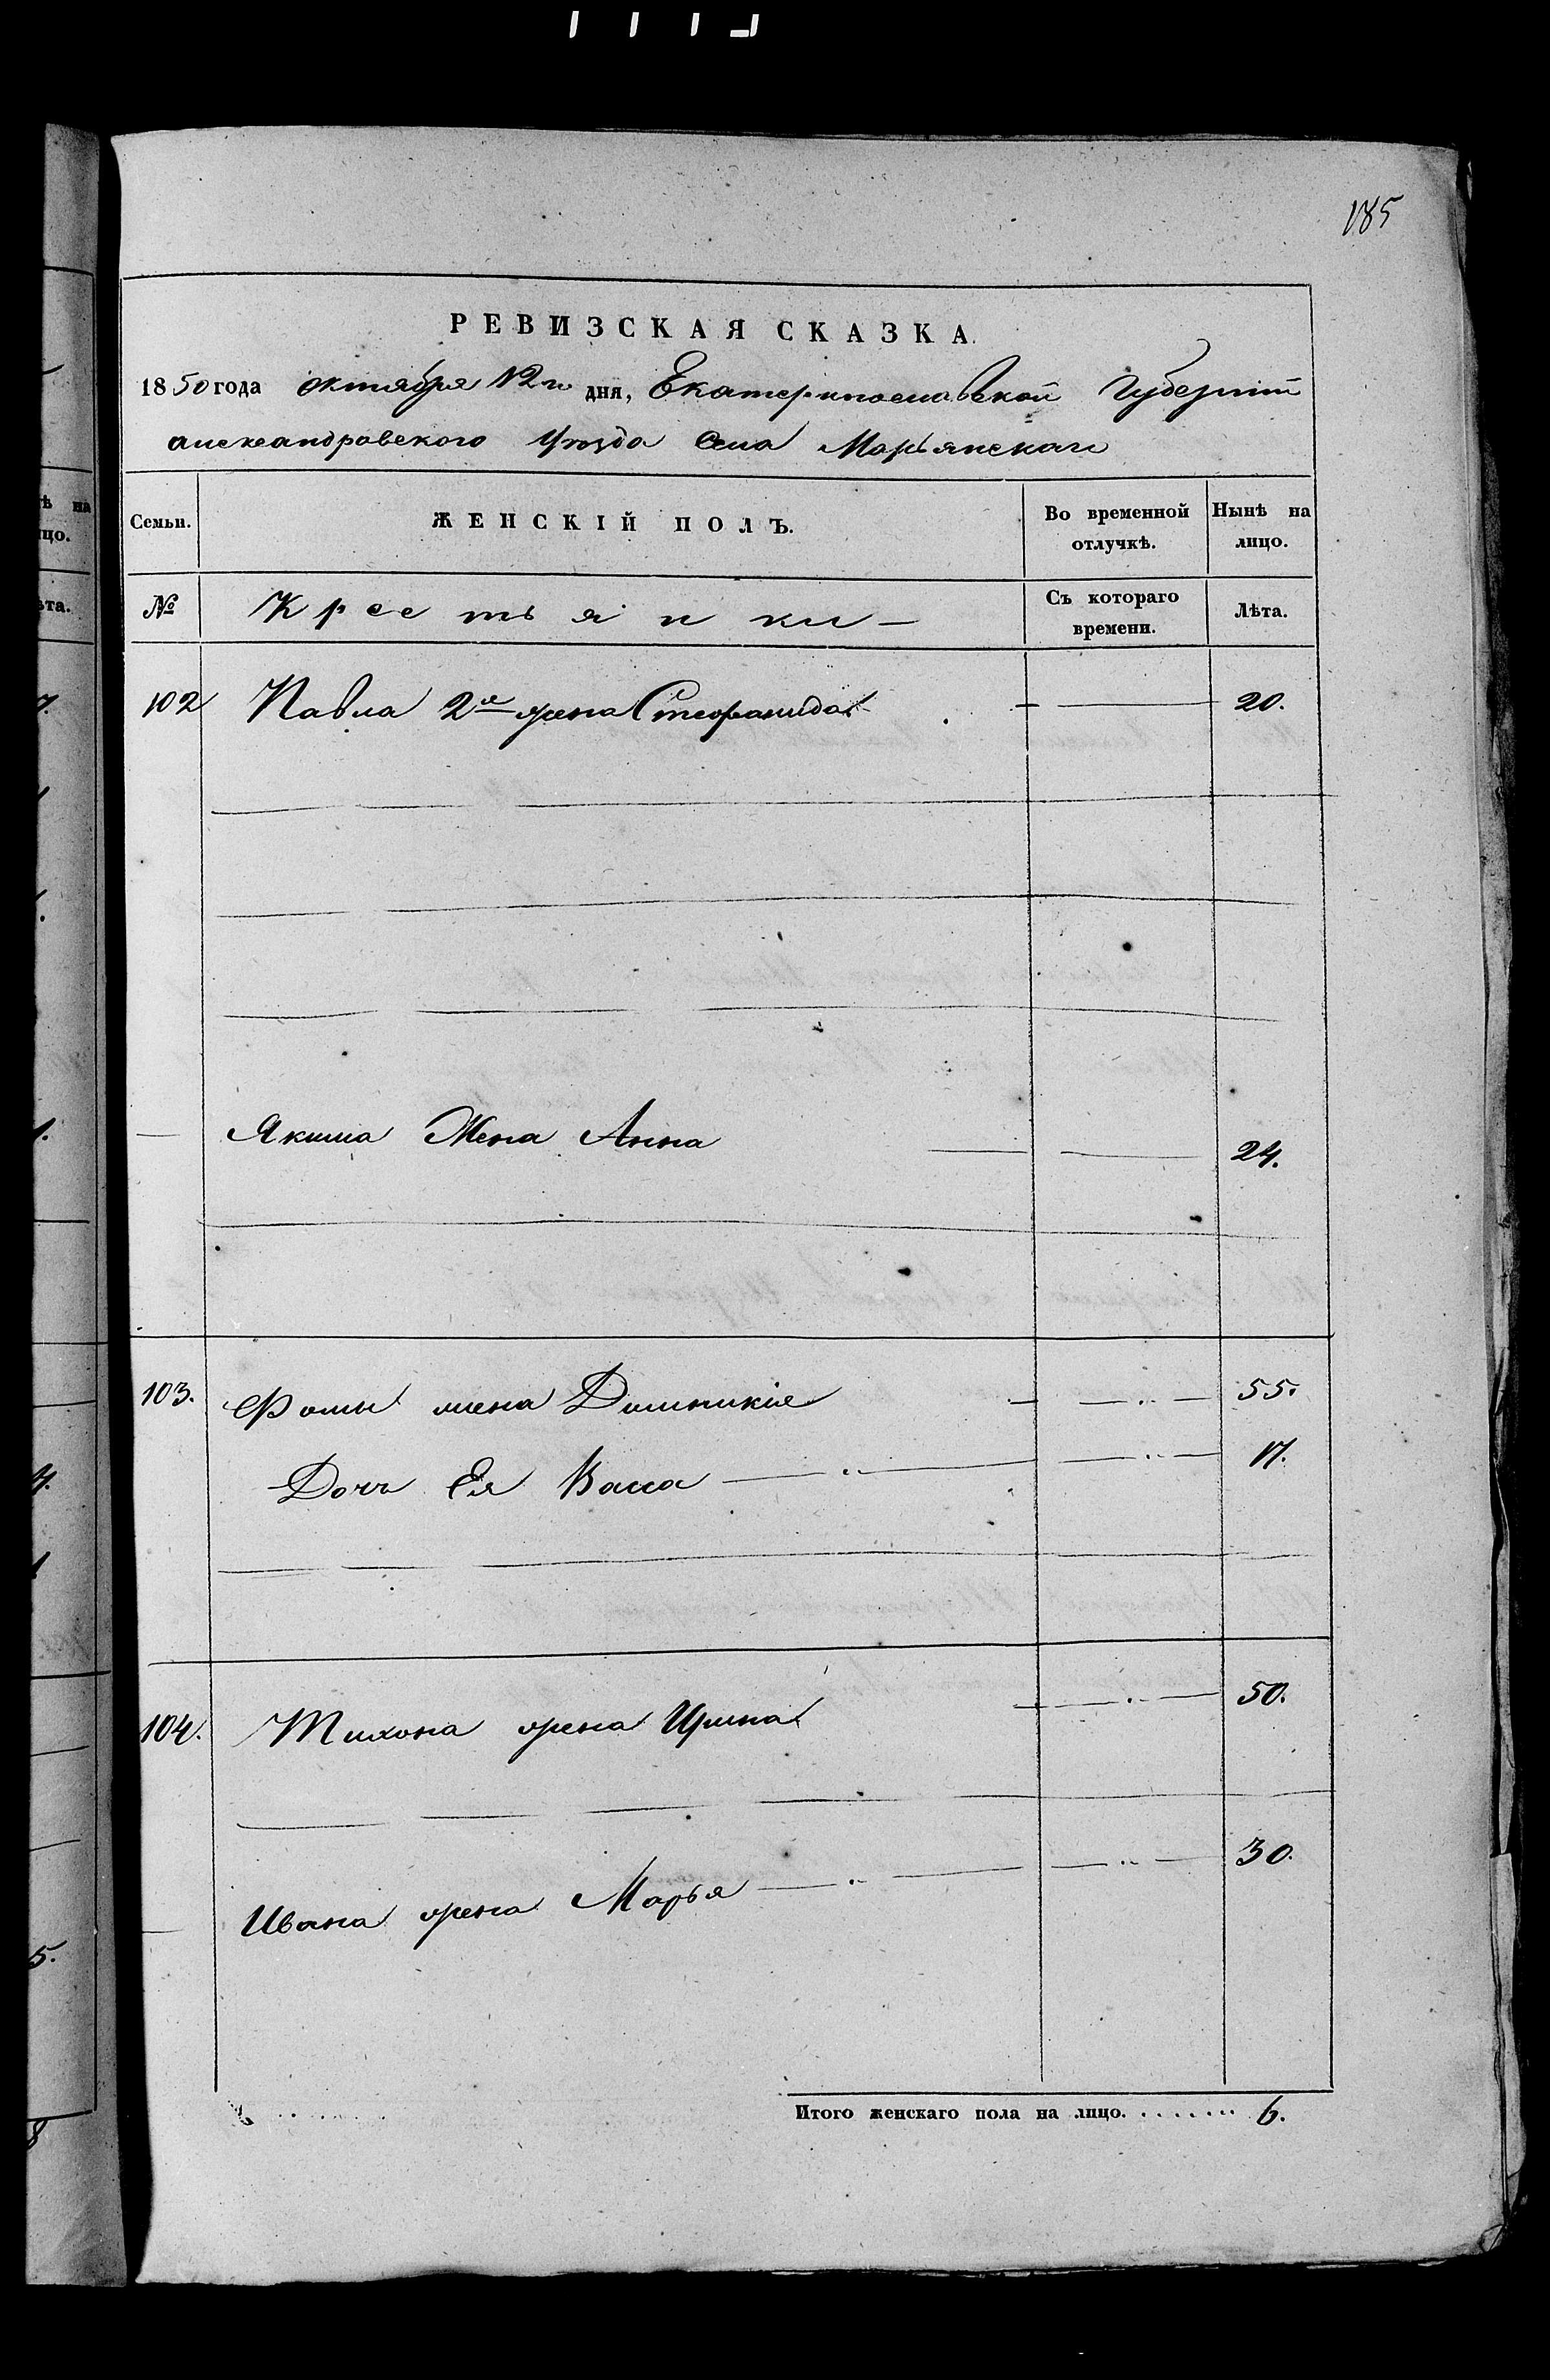 185
РЕВИЗСКАЯ СКАЗКА.
1850 года октября 12го дня, Екатеринославской Губерніи
Александровского Уѣзда Села Марьянскаго
Семьи. ЖЕНСКІЙ ПОЛЪ. Во временной отлучкѣ. Нынѣ на лицо.
№ Крестьянки — Съ котораго времени. Лѣта.
102 Павла 2я жена Стефанида — 20.
— Якима Жена Анна — — 24.
103. Фомы жена Домникія — — 55.
Дочь Ея Васса — — 17.
104. Тихона жена Ирина — — 50.
— Ивана жена Марья — — 30.
Итого женскаго пола на лицо. . . . . . . 6.